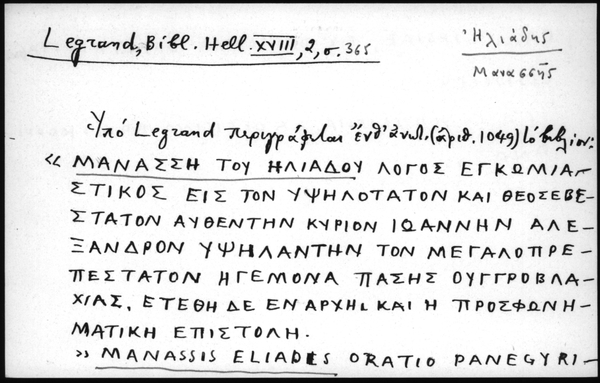 Legrand, Bibl. Hell. XVIII, 2, σ. 365
Ἠλιάδης
Μανασσῆς
Ὑπὸ Legrand περιγράφεται ἔνθ' ἀνωτ. (ἀριθ. 1049) τὸ βιβλίον:
« ΜΑΝΑΣΣΗ ΤΟΥ ΗΛΙΑΔΟΥ ΛΟΓΟΣ ΕΓΚΩΜΙΑ-
ΣΤΙΚΟΣ ΕΙΣ ΤΟΝ ΥΨΗΛΟΤΑΤΟΝ ΚΑΙ ΘΕΟΣΕΒΕ-
ΣΤΑΤΟΝ ΑΥΘΕΝΤΗΝ ΚΥΡΙΟΝ ΙΩΑΝΝΗΝ ΑΛΕ-
ΞΑΝΔΡΟΝ ΥΨΗΛΑΝΤΗΝ ΤΟΝ ΜΕΓΑΛΟΠΡΕ-
ΠΕΣΤΑΤΟΝ ΗΓΕΜΟΝΑ ΠΑΣΗΣ ΟΥΓΓΡΟΒΛΑ-
ΧΙΑΣ, ΕΤΕΘΗ ΔΕ ΕΝ ΑΡΧΗι ΚΑΙ Η ΠΡΟΣΦΩΝΗ-
ΜΑΤΙΚΗ ΕΠΙΣΤΟΛΗ.
» MANASSIS ELIADES ORATIO PANEGYRI-